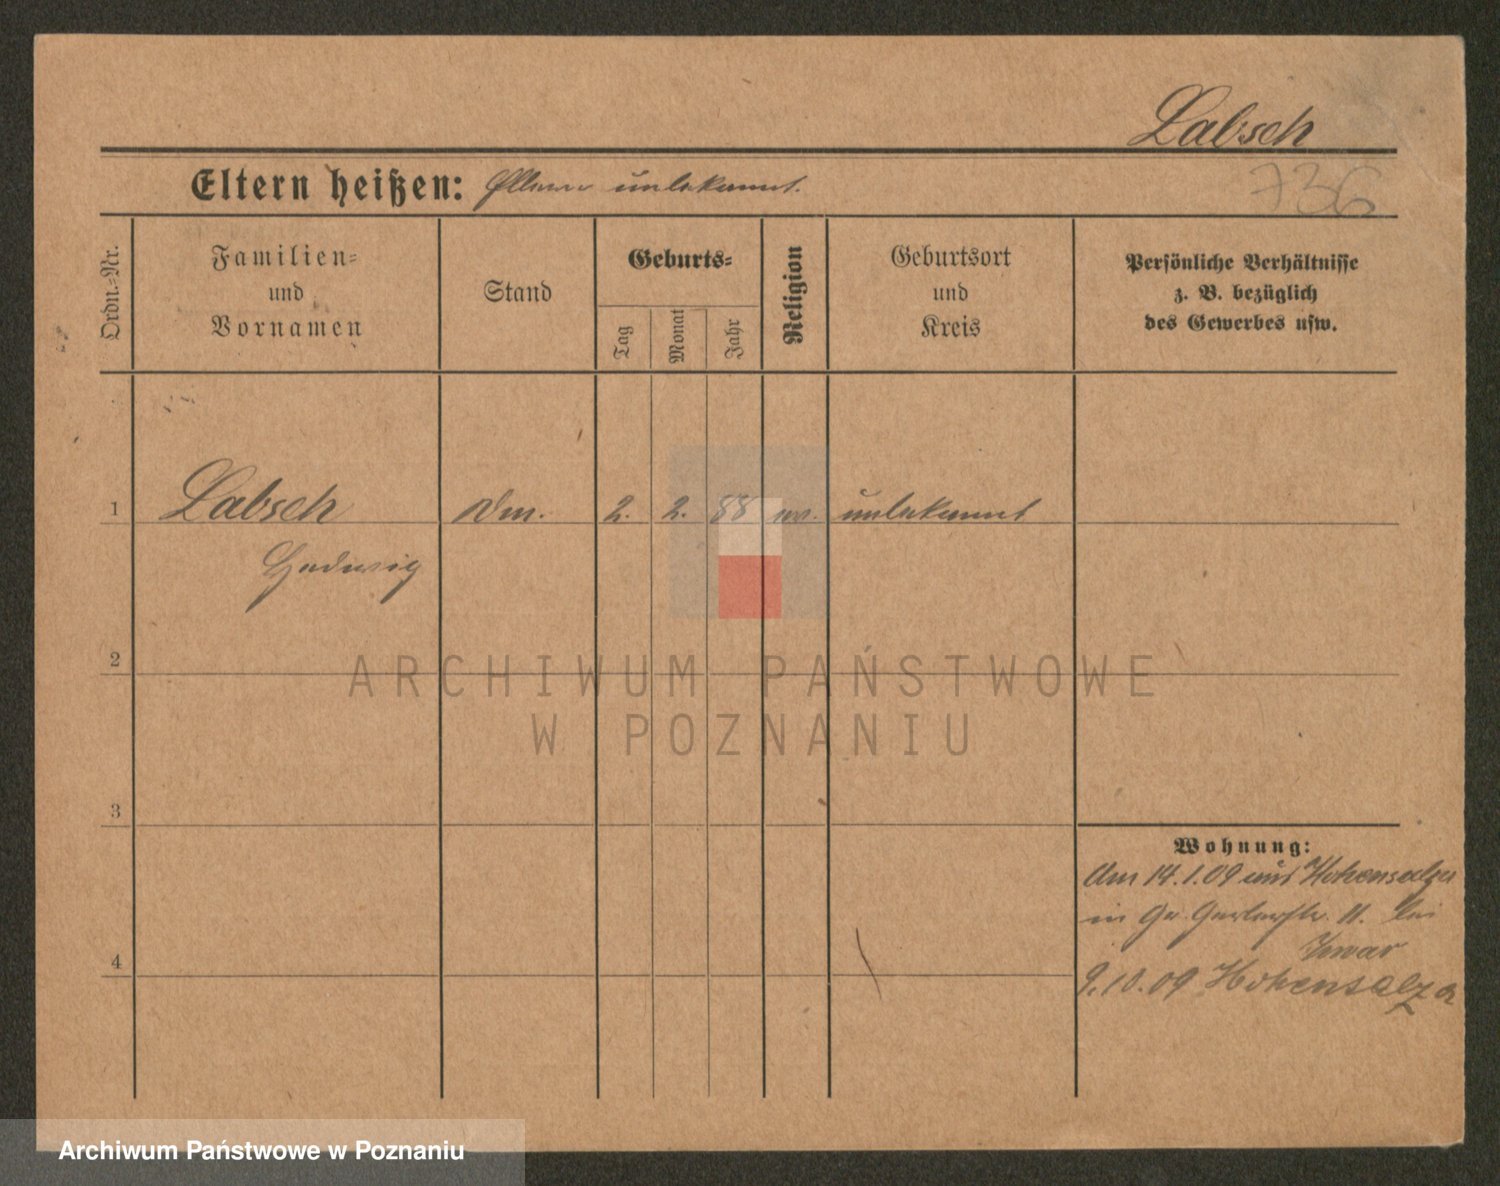 Labsch
Eltern heißen: Eltern unbekannt.
736
Ordn.-Nr.
Familien-
und
Vornamen
Stand
Geburts-
Tag
Monat
Jahr
Religion
Geburtsort
und
Kreis
Persönliche Verhältnisse
z. B. bezüglich
des Gewerbes usw.
1 Labsch 2. 2. 88 unbekannt
Hedwig
2
3
4
Wohnung:
Am 14.1.09 Hohensalza
in 11. bei
9.10.09 Hohensalza
ARCHIWUM PAŃSTWOWE
W POZNANIU
Archiwum Państwowe w Poznaniu